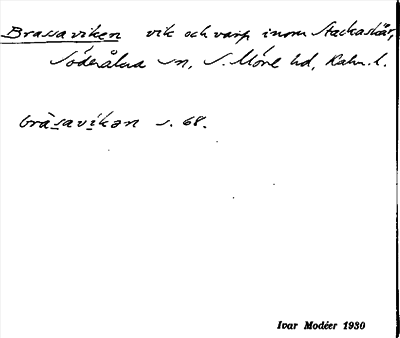 Brassaviken vik och varp inom Stackaskär,
Söderåkra sn, S. Möre hd, Kalm. l.
bràsavíkən s. 68.
Ivar Modéer 1930